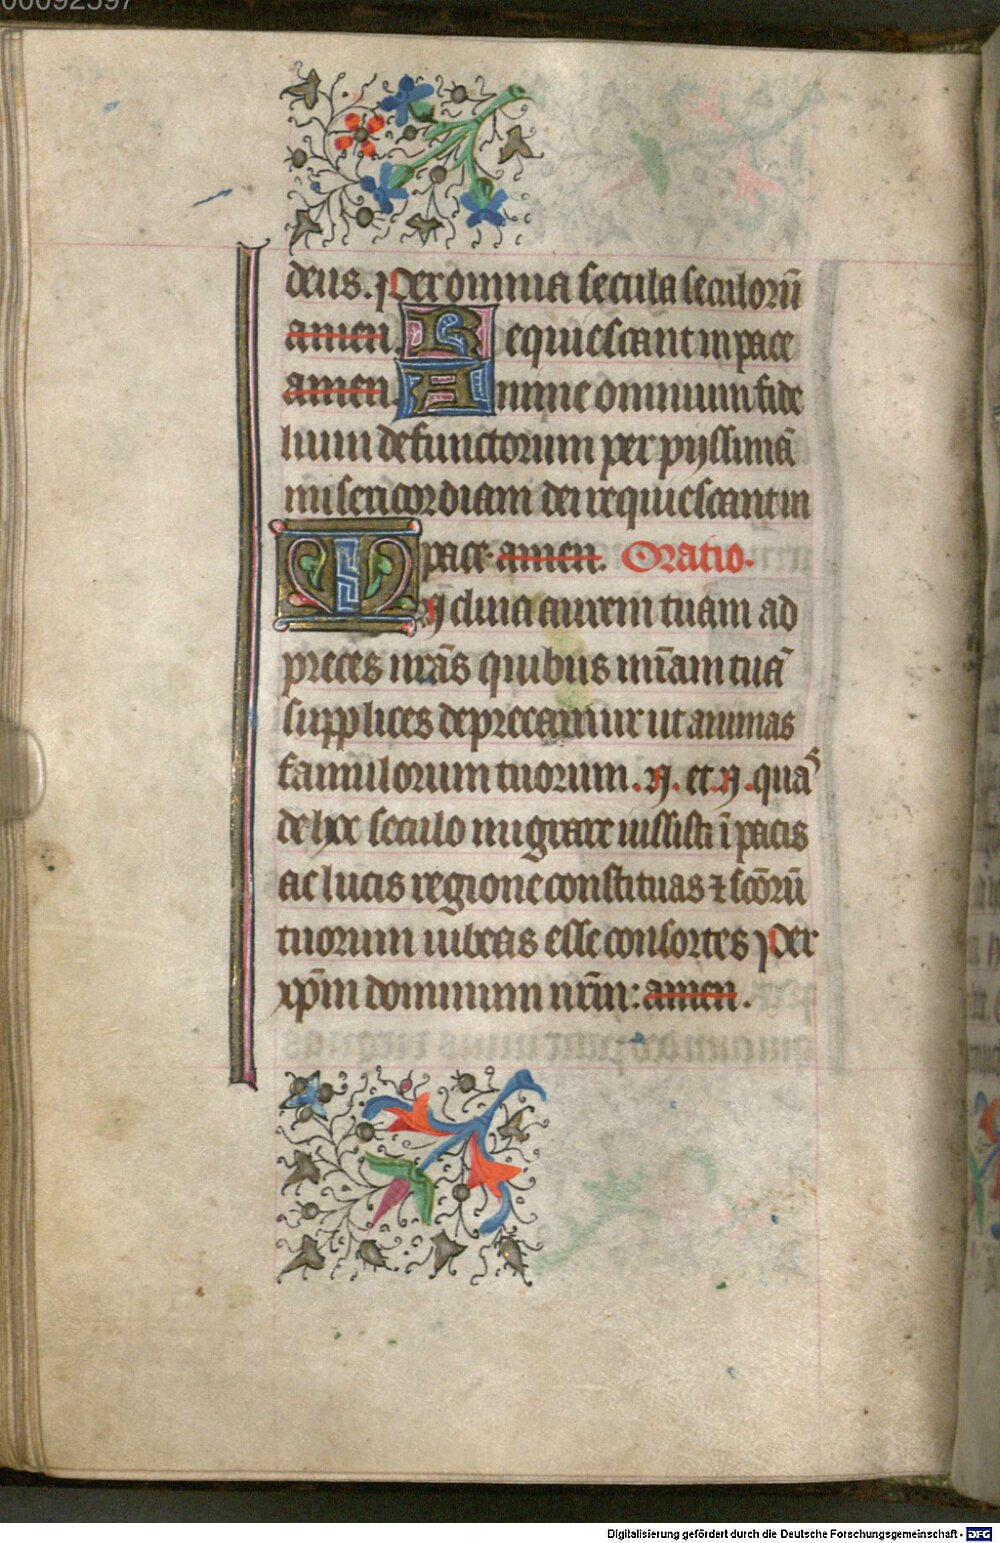 00092597
deus. Per omnia secula seculorũ
amen. Requiescant in pace
amen. Anime omnium fide
lium defunctorum per pijssimã
misericordiam dei requiescant in
pace. amen. Oratio.
Inclina aurem tuam ad
preces nr̃as quibus mĩam tuã
supplices deprecamur ut animas
famulorum tuorum .N. et .N. quas
de hoc seculo migrare iussisti ĩ pacis
ac lucis regione constituas ⁊ sc̃orũ
tuorum iubeas esse consortes Per
xp̃m dominum nr̃m: amen.
Digitalisierung gefördert durch die Deutsche Forschungsgemeinschaft - DFG